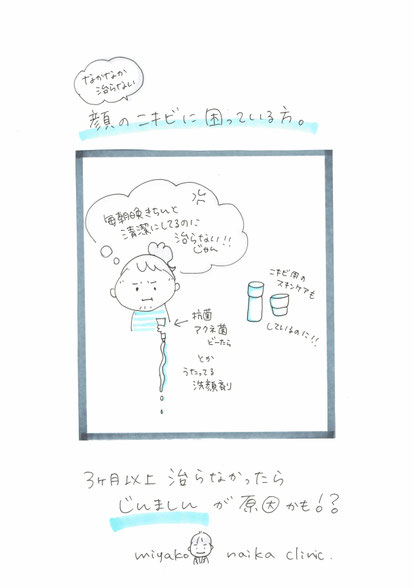 なかなか
治らない
顔のニキビに困っている方。
毎朝晩きちんと
清潔にしてるのに
治らない!!
じゃん
ニキビ用の
スキンケアも
しているのに!!
抗菌
アクネ菌
どーたら
とか
うたってる
洗顔剤
3ヶ月以上 治らなかったら
じんましんが原因かも!?
miyako naika clinic.